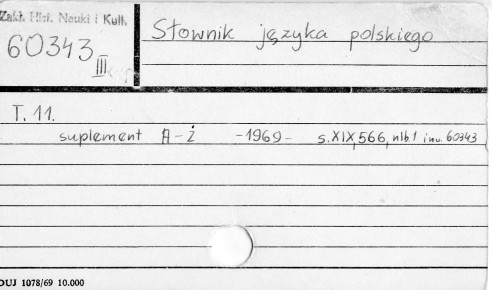 Zakł. Hist. Nauki i Kult.
60343
III
Słownik języka polskiego
T. 11.
suplement A-Ż -1969- s.XIX,566, nlb.1 inw. 60343
DUJ 1078/69 10.000